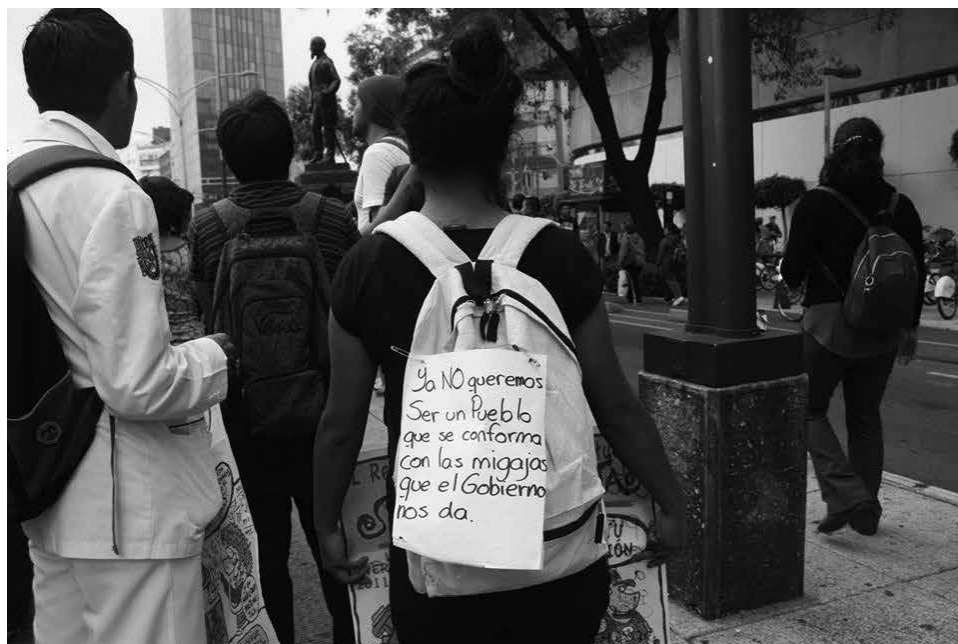 Ya NO queremos
Ser un Pueblo
que se conforma
con las migajas
que el Gobierno
nos da.
Vans
TU
IÓN